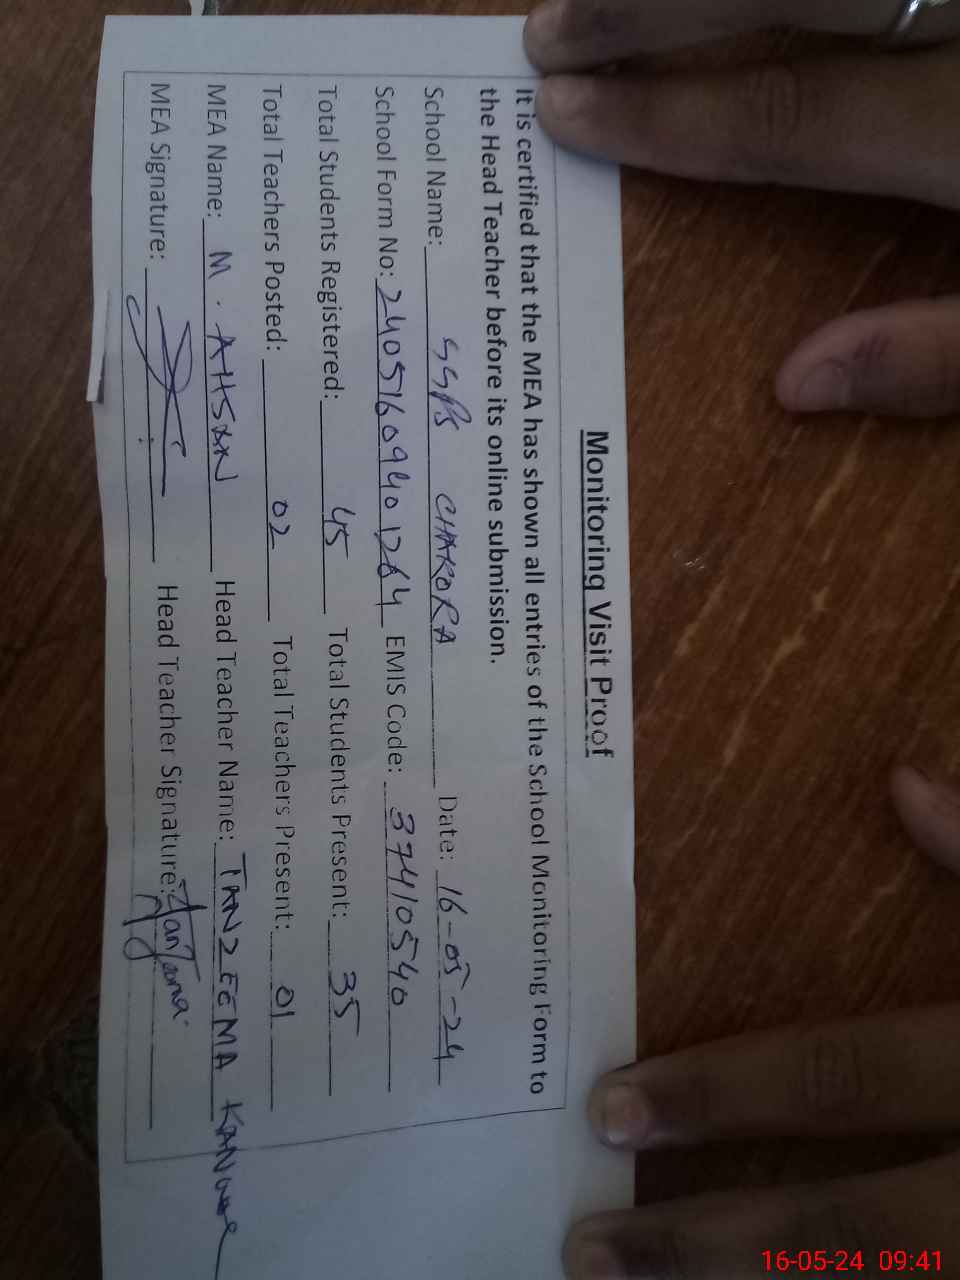 Monitoring Visit Proof
It is certified that the MEA has shown all entries of the School Monitoring Form to
the Head Teacher before its online submission.
School Name: SSPS CHAKORA Date: 16-05-24
School Form No: 240516094401264 EMIS Code: 37410540
Total Students Registered: 45 Total Students Present: 35
Total Teachers Posted: 02 Total Teachers Present: 01
MEA Name: M. AHSAN Head Teacher Name: TANZEEMA KANWAL
MEA Signature: Head Teacher Signature:
16-05-24 09:41